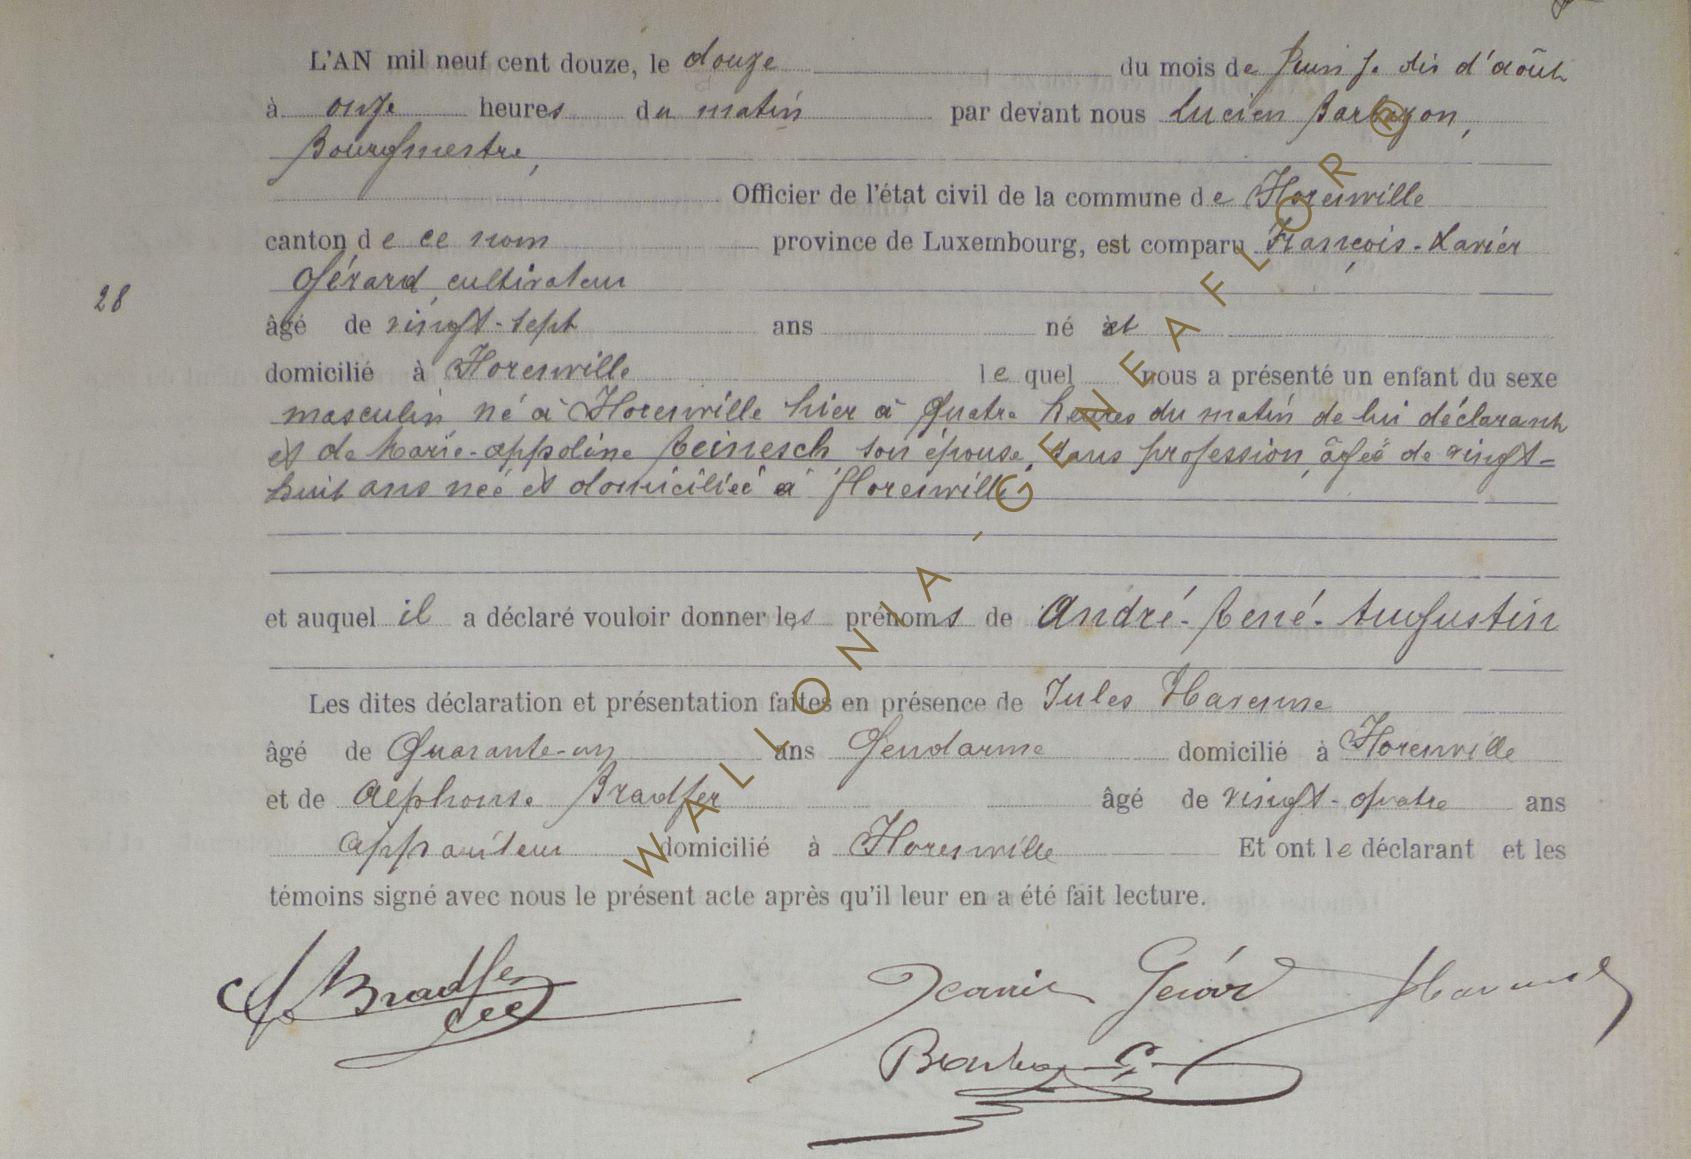 L'AN mil neuf cent douze, le douze du mois de Juin je dis d'août
à onze heures du matin par devant nous Lucien Barbazon,
Bourgmestre,
Officier de l'état civil de la commune de Florenville
canton de ce nom province de Luxembourg, est comparu François-Xavier
Gérard, cultivateur
28
âgé de vingt-sept ans né et
domicilié à Florenville lequel nous a présenté un enfant du sexe
masculin, né à Florenville hier à quatre heures du matin de lui déclarant
et de Marie-Appoline Reinesch son épouse, sans profession, âgée de vingt-
huit ans née et domiciliée à Florenville
et auquel il a déclaré vouloir donner les prénoms de André-René-Augustin
Les dites déclaration et présentation faites en présence de Jules
âgé de Quarante-un ans Gendarme domicilié à Florenville
et de Alphonse Bradfer âgé de vingt-quatre ans
appariteur domicilié à Florenville Et ont le déclarant et les
témoins signé avec nous le présent acte après qu'il leur en a été fait lecture.
Bradfer Xavier Gérard
WALLONIA-GENEAFLOR ®